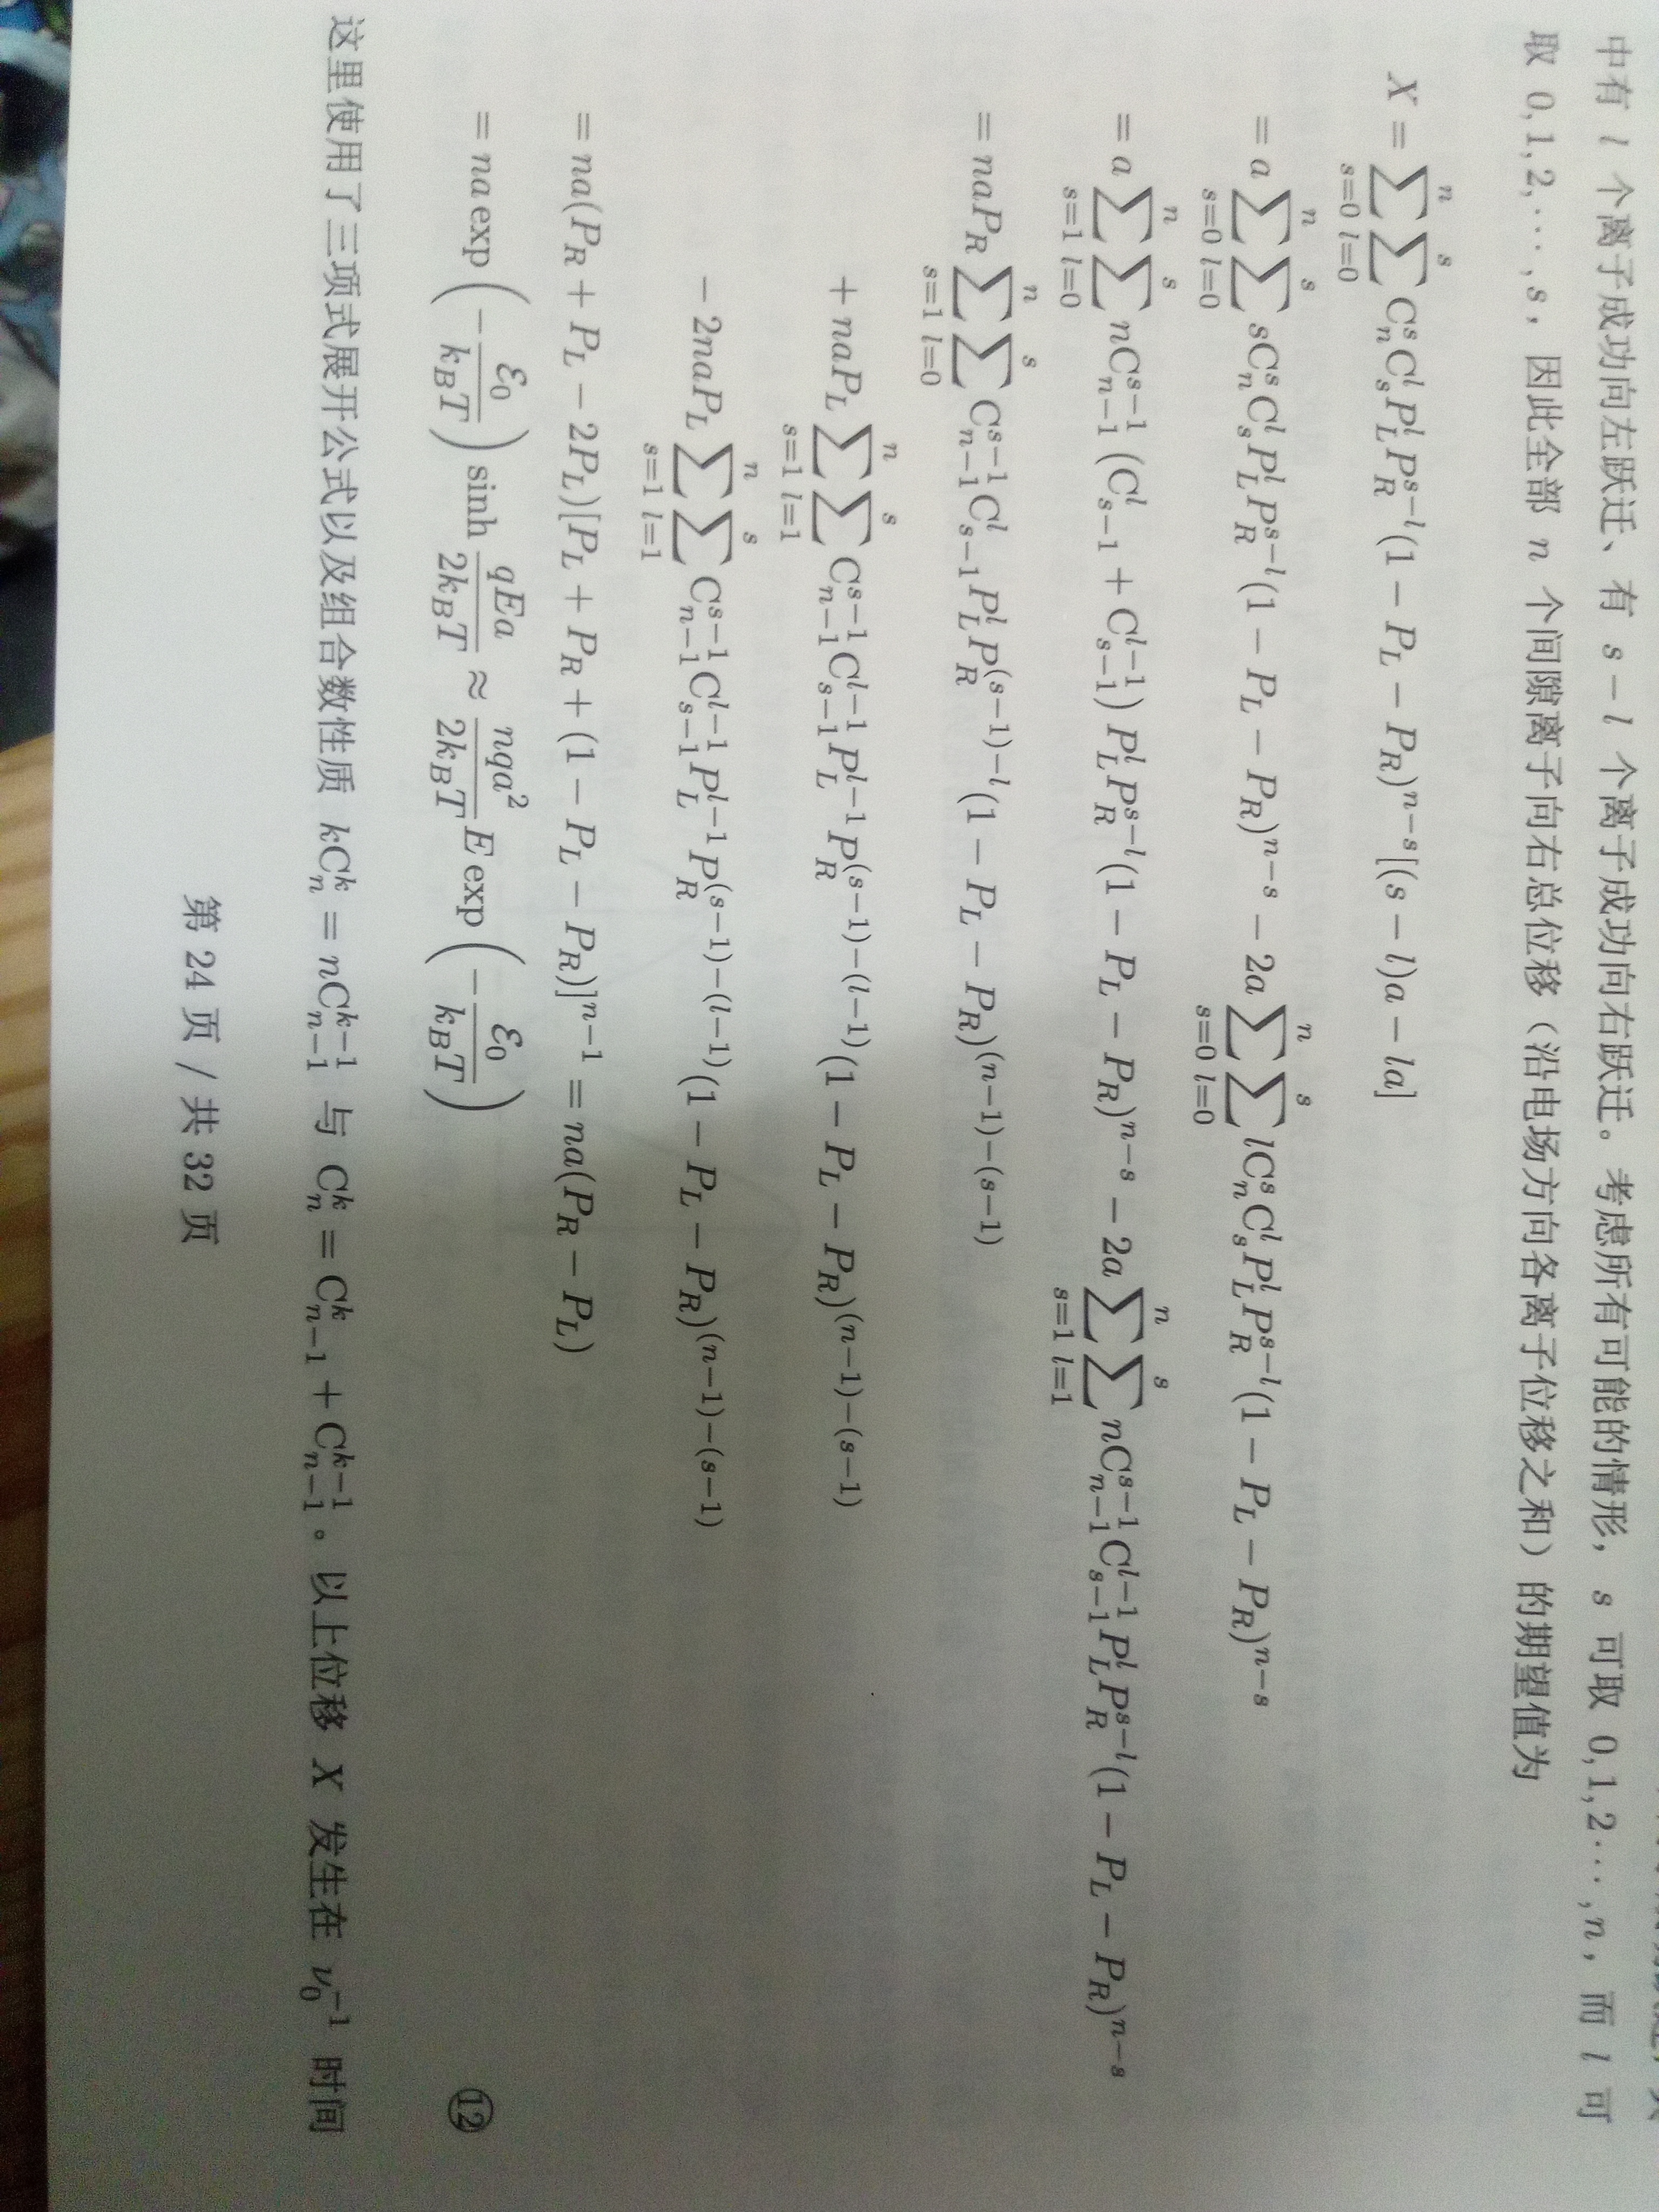 中有 l 个离子成功向左跃迁、有 s − l 个离子成功向右跃迁。考虑所有可能的情形，s 可取 0,1,2⋯,n，而 l 可
取 0,1,2,⋯,s，因此全部 n 个间隙离子向右总位移（沿电场方向各离子位移之和）的期望值为
X = \sum_{s=0}^{n} \sum_{l=0}^{s} C_n^s C_s^l P_L^l P_R^{s-l} (1 − P_L − P_R)^{n-s} [(s − l)a − la]
= a \sum_{s=0}^{n} \sum_{l=0}^{s} s C_n^s C_s^l P_L^l P_R^{s-l} (1 − P_L − P_R)^{n-s} − 2a \sum_{s=0}^{n} \sum_{l=0}^{s} l C_n^s C_s^l P_L^l P_R^{s-l} (1 − P_L − P_R)^{n-s}
= a \sum_{s=1}^{n} \sum_{l=0}^{s} n C_{n-1}^{s-1} (C_{s-1}^l + C_{s-1}^{l-1}) P_L^l P_R^{s-l} (1 − P_L − P_R)^{n-s} − 2a \sum_{s=1}^{n} \sum_{l=1}^{s} n C_{n-1}^{s-1} C_{s-1}^{l-1} P_L^l P_R^{s-l} (1 − P_L − P_R)^{n-s}
= naP_R \sum_{s=1}^{n} \sum_{l=0}^{s} C_{n-1}^{s-1} C_{s-1}^l P_L^l P_R^{(s-1)-l} (1 − P_L − P_R)^{(n-1)-(s-1)}
+ naP_L \sum_{s=1}^{n} \sum_{l=1}^{s} C_{n-1}^{s-1} C_{s-1}^{l-1} P_L^{l-1} P_R^{(s-1)-(l-1)} (1 − P_L − P_R)^{(n-1)-(s-1)}
− 2naP_L \sum_{s=1}^{n} \sum_{l=1}^{s} C_{n-1}^{s-1} C_{s-1}^{l-1} P_L^{l-1} P_R^{(s-1)-(l-1)} (1 − P_L − P_R)^{(n-1)-(s-1)}
= na(P_R + P_L − 2P_L)[P_L + P_R + (1 − P_L − P_R)]^{n-1} = na(P_R − P_L)
= na exp (−\frac{ε_0}{k_B T}) sinh \frac{qEa}{2k_B T} ≈ \frac{nqa^2}{2k_B T} E exp (−\frac{ε_0}{k_B T}) ⑫
这里使用了三项式展开公式以及组合数性质 kC_n^k = nC_{n-1}^{k-1} 与 C_n^k = C_{n-1}^k + C_{n-1}^{k-1}。以上位移 X 发生在 ν_0^{-1} 时间
第 24 页 / 共 32 页